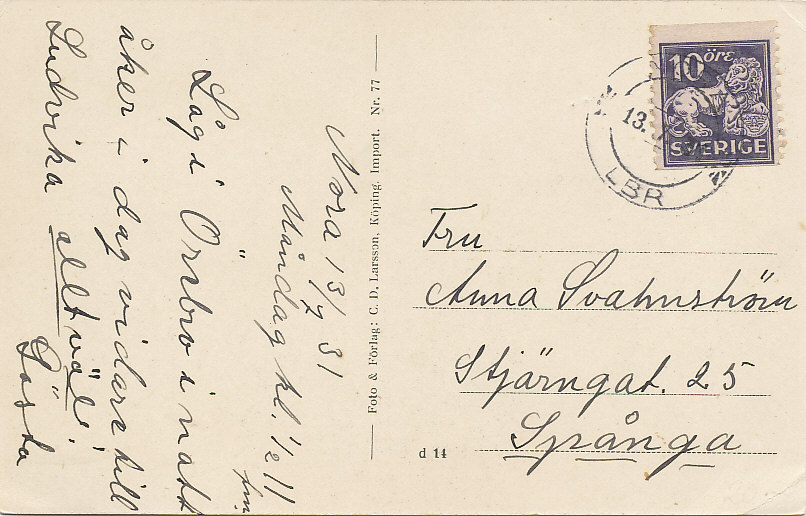 Nora 13/7 31
Måndag kl. 1/2 11
fm.
Låg i Örebro i natt
åker i dag vidare till
Ludvika allt väl!
Gösta
Foto & Förlag: C. D. Larsson, Köping. Import. Nr. 77
10 öre
SVERIGE
13. 7
LBR
Fru
Anna Svahnström
Stjärngat. 25
Spånga
d 14